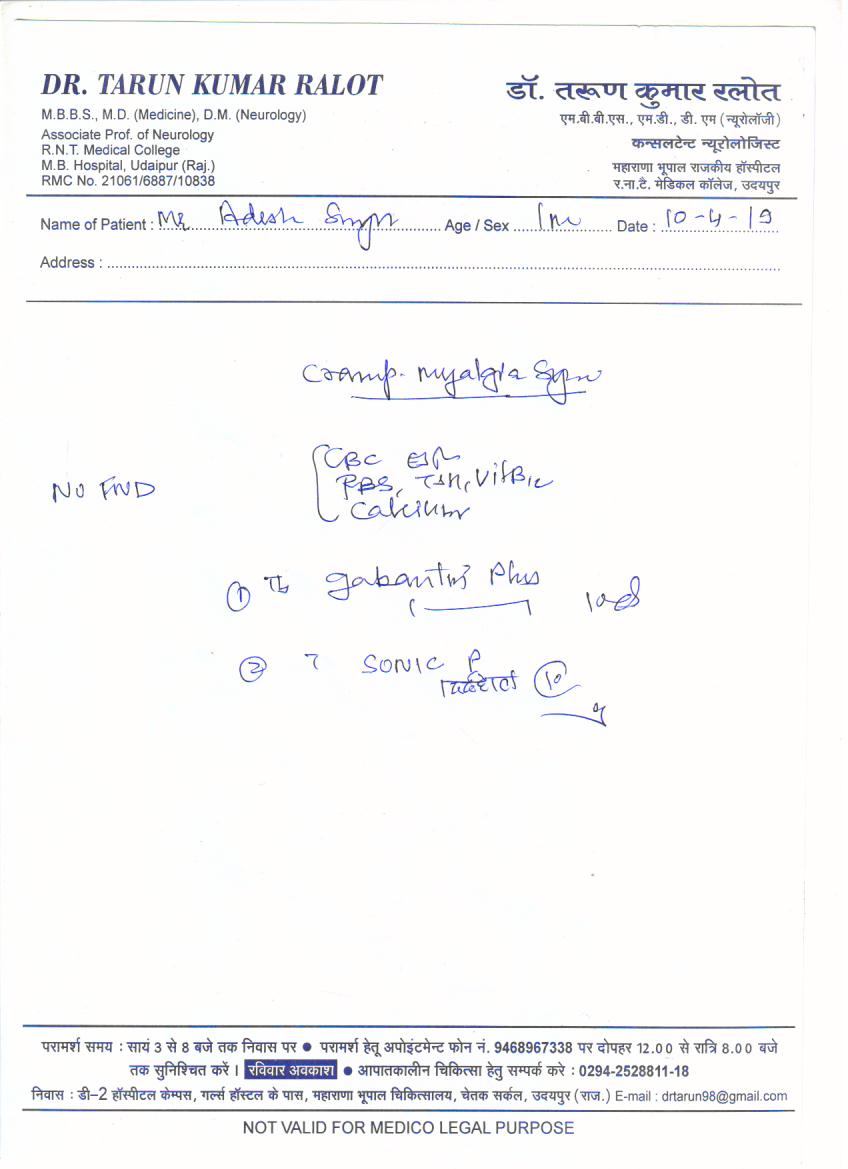 DR. TARUN KUMAR RALOT
M.B.B.S., M.D. (Medicine), D.M. (Neurology)
Associate Prof. of Neurology
R.N.T. Medical College
M.B. Hospital, Udaipur (Raj.)
RMC No. 21061/6887/10838
डॉ. तरूण कुमार रलोत
एम.बी.बी.एस., एम.डी., डी. एम (न्यूरोलॉजी)
कन्सलटेन्ट न्यूरोलोजिस्ट
महाराणा भूपाल राजकीय हॉस्पीटल
र.ना.टै. मेडिकल कॉलेज, उदयपुर
Name of Patient : Mr Adesh Age / Sex /m Date : 10-4-19
Address :
Cramp- myalgia
CBC ESR
NO FND
RBS, TSH, VitB12
Calcium
① Tb gabantin Plus 10
② T SONIC P
10
परामर्श समय : सायं 3 से 8 बजे तक निवास पर ● परामर्श हेतु अपोइंटमेन्ट फोन नं. 9468967338 पर दोपहर 12.00 से रात्रि 8.00 बजे
तक सुनिश्चित करें । रविवार अवकाश ● आपातकालीन चिकित्सा हेतु सम्पर्क करे : 0294-2528811-18
निवास : डी–2 हॉस्पीटल केम्पस, गर्ल्स हॉस्टल के पास, महाराणा भूपाल चिकित्सालय, चेतक सर्कल, उदयपुर (राज.) E-mail : drtarun98@gmail.com
NOT VALID FOR MEDICO LEGAL PURPOSE